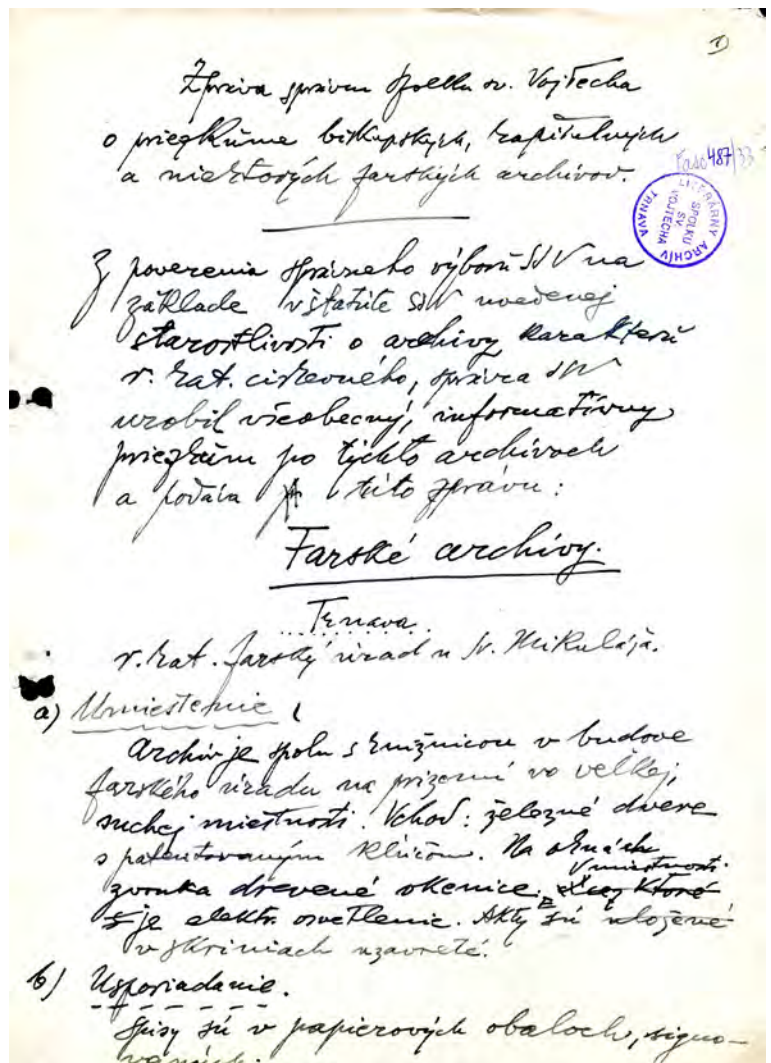 1)
Zpráva správcu Spolku sv. Vojtecha
o prieskume biskupských, kapitulných
a niektorých farských archívov.
Fasc 487/33
LITERÁRNY ARCHÍV
SPOLKU
SV.
VOJTECHA
TRNAVA
Z poverenia správneho výboru SSV na
základe v štatúte SSV uvedenej
starostlivosti o archívy karakteru
r. kat. cirkevného, správca SSV
urobil všeobecný, informatívny
prieskum po týchto archívoch
a podáva túto zprávu:
Farské archívy.
Trnava
r. kat. farský úrad u sv. Mikuláša.
a) Umiestenie
Archív je spolu s knižnicou v budove
farského úradu na prízemí vo veľkej,
suchej miestnosti. Vchod: železné dvere
s patentovaným kľúčom. Na oknách
zvonka drevené okenice. V miestnosti
je elektr. osvetlenie. Akty sú uložené
v skriniach uzavreté.
b) Usporiadanie.
Spisy sú v papierových obaloch, signo-
vaných.